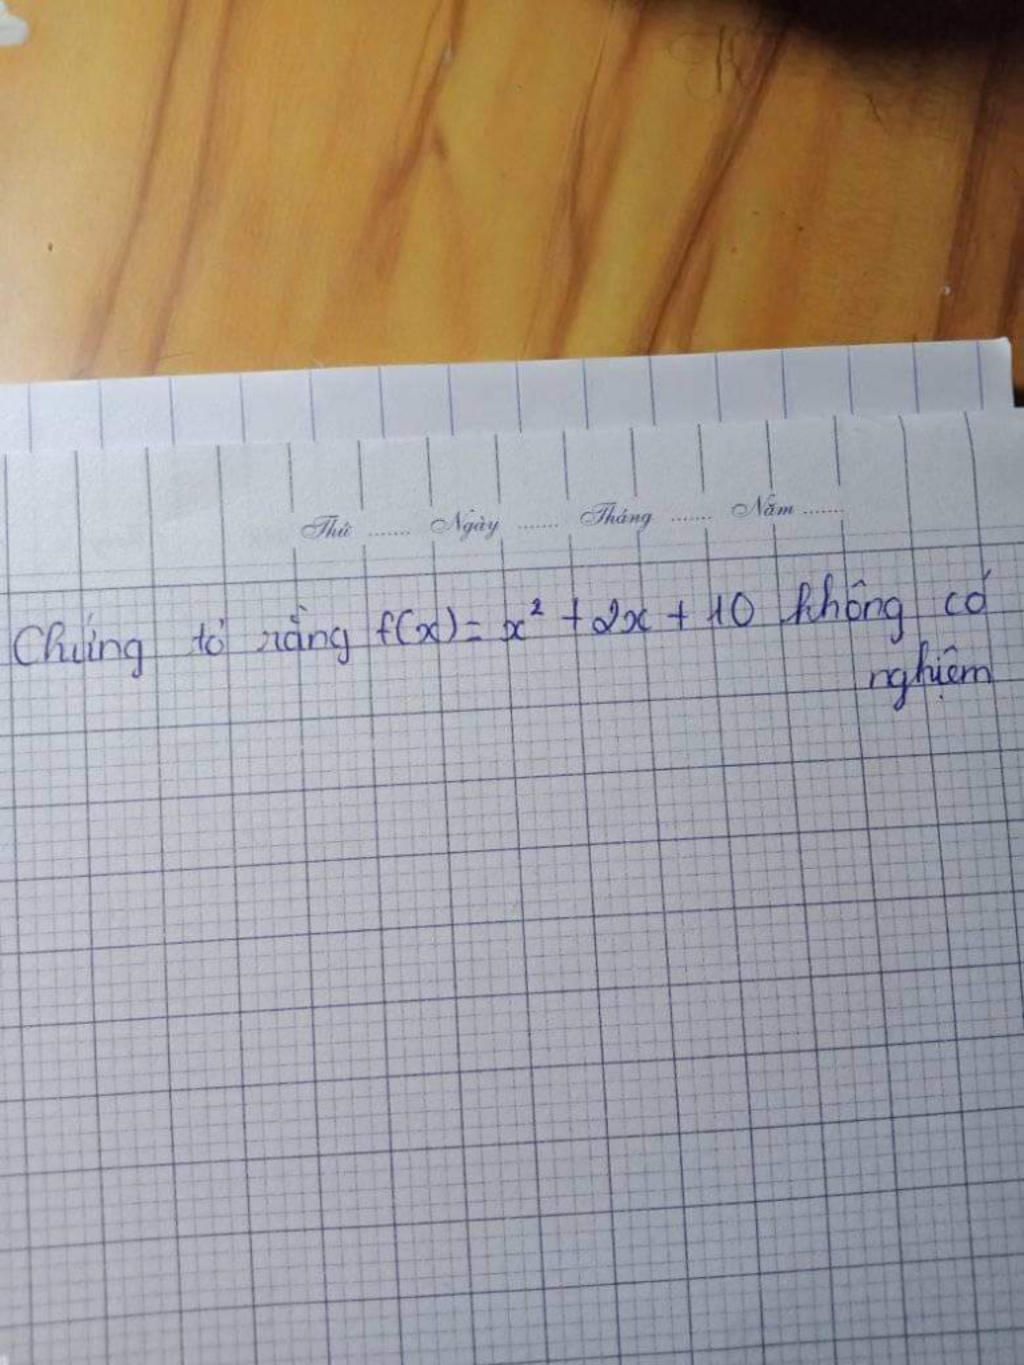 Thứ ....... Ngày ....... Tháng ....... Năm .......
Chứng tỏ rằng f(x) = x² + 2x + 10 không có
nghiệm